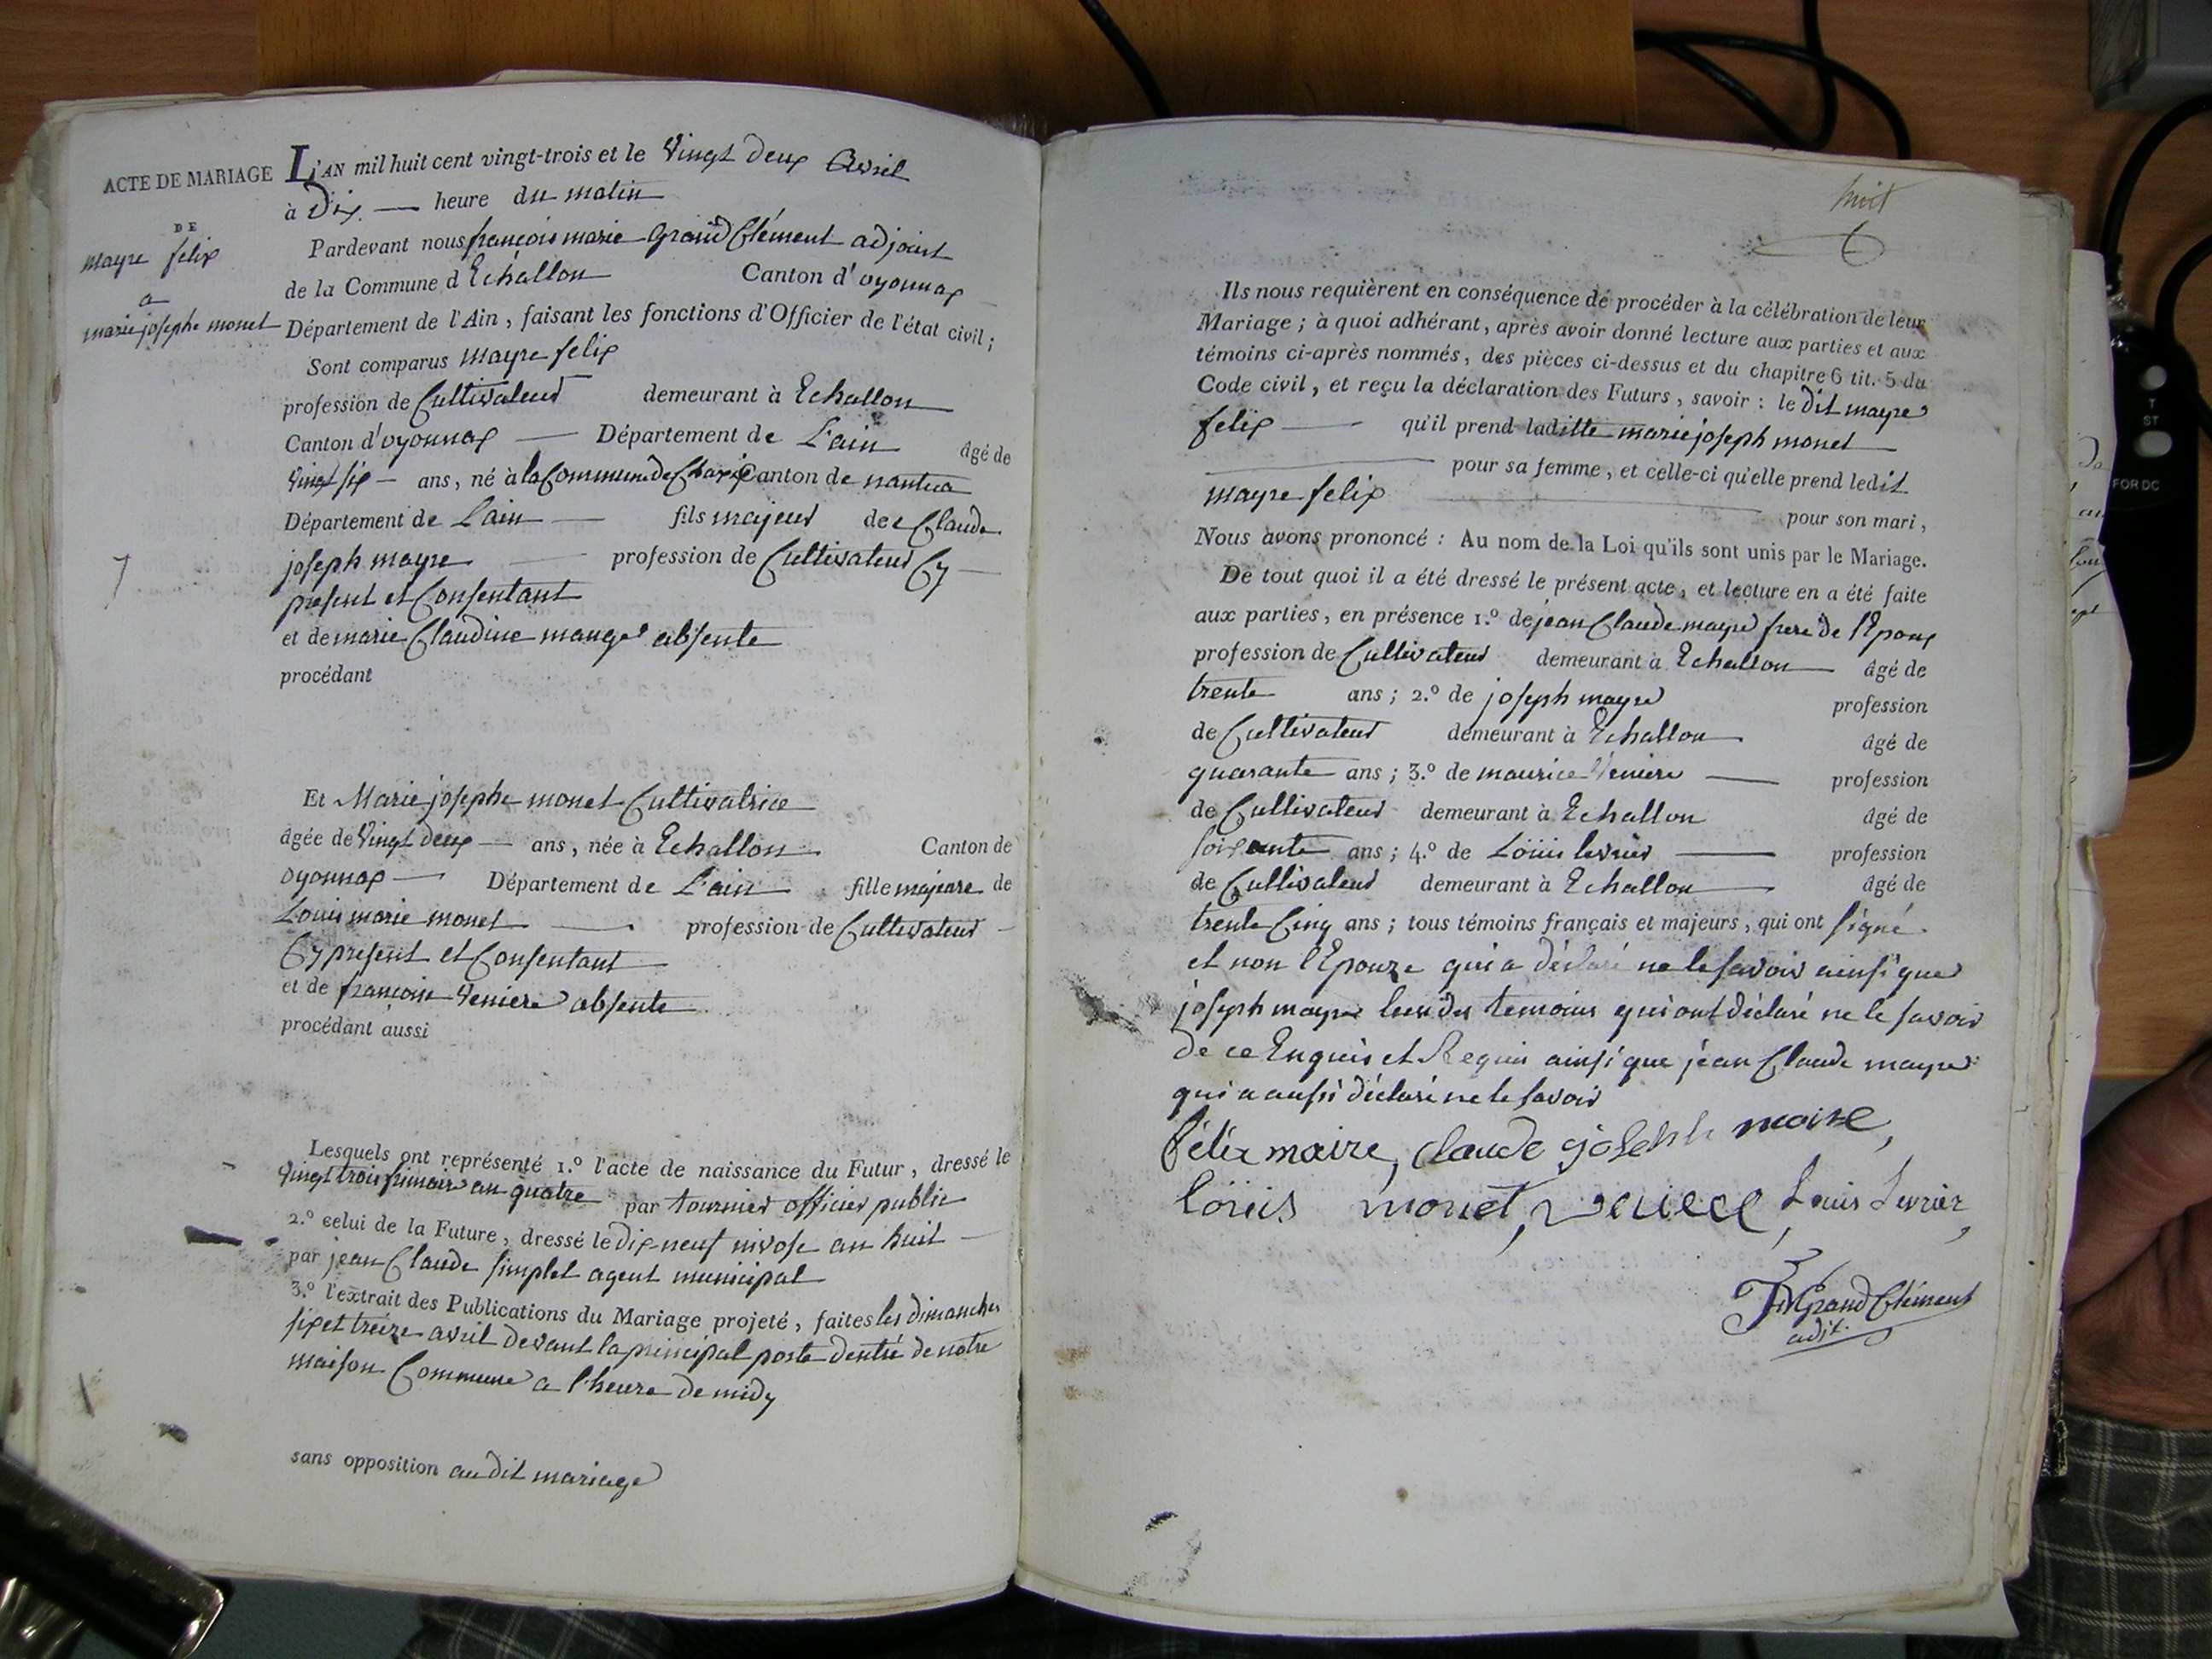 ACTE DE MARIAGE
DE
mayre felix
a
marie josephe monet
L'AN mil huit cent vingt-trois et le Vingt deux Avril
à Dix heure du matin
Pardevant nous françois marie Grand Clément adjoint
de la Commune d'Echallon Canton d'oyonnax
Département de l'Ain, faisant les fonctions d'Officier de l'état civil;
Sont comparus mayre felix
profession de Cultivateur demeurant à Echallon
Canton d'oyonnax Département de L'ain âgé de
Vingt six ans, né à la Commune de Charix Canton de nantua
Département de L'ain fils majeur de Claude
joseph mayre profession de Cultivateur Cy
present et Consentant
et de marie Claudine absente
procédant
Et Marie josephe monet Cultivatrice
âgée de Vingt deux ans, née à Echallon Canton de
oyonnax Département de L'ain fille majeure de
Louis marie monet profession de Cultivateur
Cy present et Consentant
et de françoise Veniere absente
procédant aussi
Lesquels ont représenté 1.º l'acte de naissance du Futur, dressé le
Vingt trois frimaire an quatre par tournier officier public
2.º celui de la Future, dressé le dix-neuf nivose an huit
par jean Claude simplet agent municipal
3.º l'extrait des Publications du Mariage projeté, faites les dimanches
six et treize avril devant la principal porte dentré de notre
maison Commune a l'heure de midy
sans opposition au dit mariage
huit
Ils nous requièrent en conséquence de procéder à la célébration de leur
Mariage; à quoi adhérant, après avoir donné lecture aux parties et aux
témoins ci-après nommés, des pièces ci-dessus et du chapitre 6 tit. 5 du
Code civil, et reçu la déclaration des Futurs, savoir: le dit mayre
felix qu'il prend laditte marie joseph monet
pour sa femme, et celle-ci qu'elle prend ledit
mayre felix pour son mari,
Nous avons prononcé: Au nom de la Loi qu'ils sont unis par le Mariage.
De tout quoi il a été dressé le présent acte, et lecture en a été faite
aux parties, en présence 1.º de jean Claude mayre frere de l'Epoux
profession de Cultivateur demeurant à Echallon âgé de
trente ans; 2.º de joseph mayre profession
de Cultivateur demeurant à Echallon âgé de
quarante ans; 3.º de maurice Veniere profession
de Cultivateur demeurant à Echallon âgé de
soixante ans; 4.º de Loüis levrier profession
de Cultivateur demeurant à Echallon âgé de
trente Cinq ans; tous témoins français et majeurs, qui ont signé.
et non l'Epouze qui a déclaré ne le savoir ainsi que
joseph mayre lun des temoins qui ont déclaré ne le savoir
de ce Enquis et Requis ainsi que jean Claude mayre
qui a aussi déclaré ne le savoir
félix maire, claude joseph maire,
loüis monet, veniere, Louis Levrier,
FM Grand Clément
adjt.